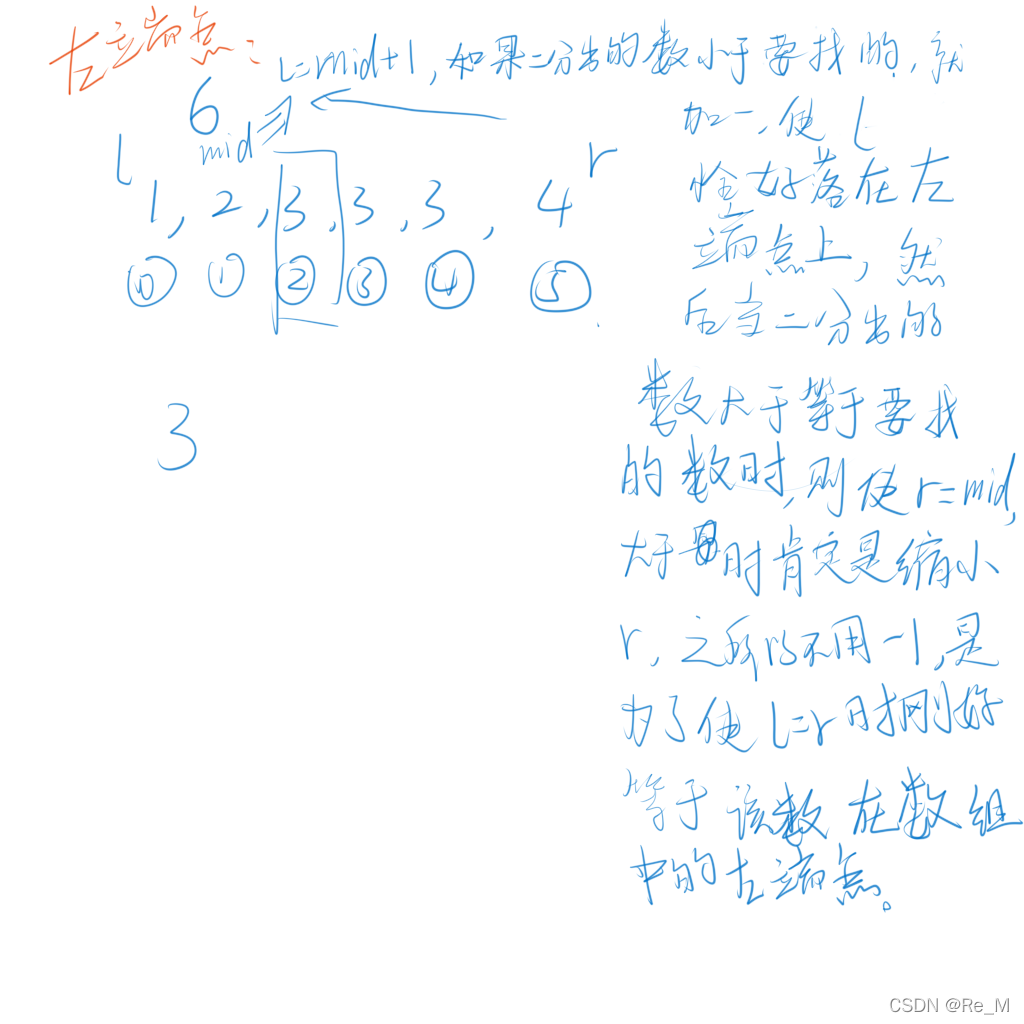 左端点：
l=mid+1，如果二分出的数小于要找的，就
6
mid
加一，使 l
l
r
恰好落在左
1, 2, 3, 3, 3, 4
端点上，然
⓪ ① ② ③ ④ ⑤
后当二分出的
数大于等于要找
3
的数时，则使 r=mid，
大于 时肯定是缩小
r，之所以不用-1，是
为了使 l=r 时刚好
等于该数在数组
中的左端点。
CSDN @Re_M